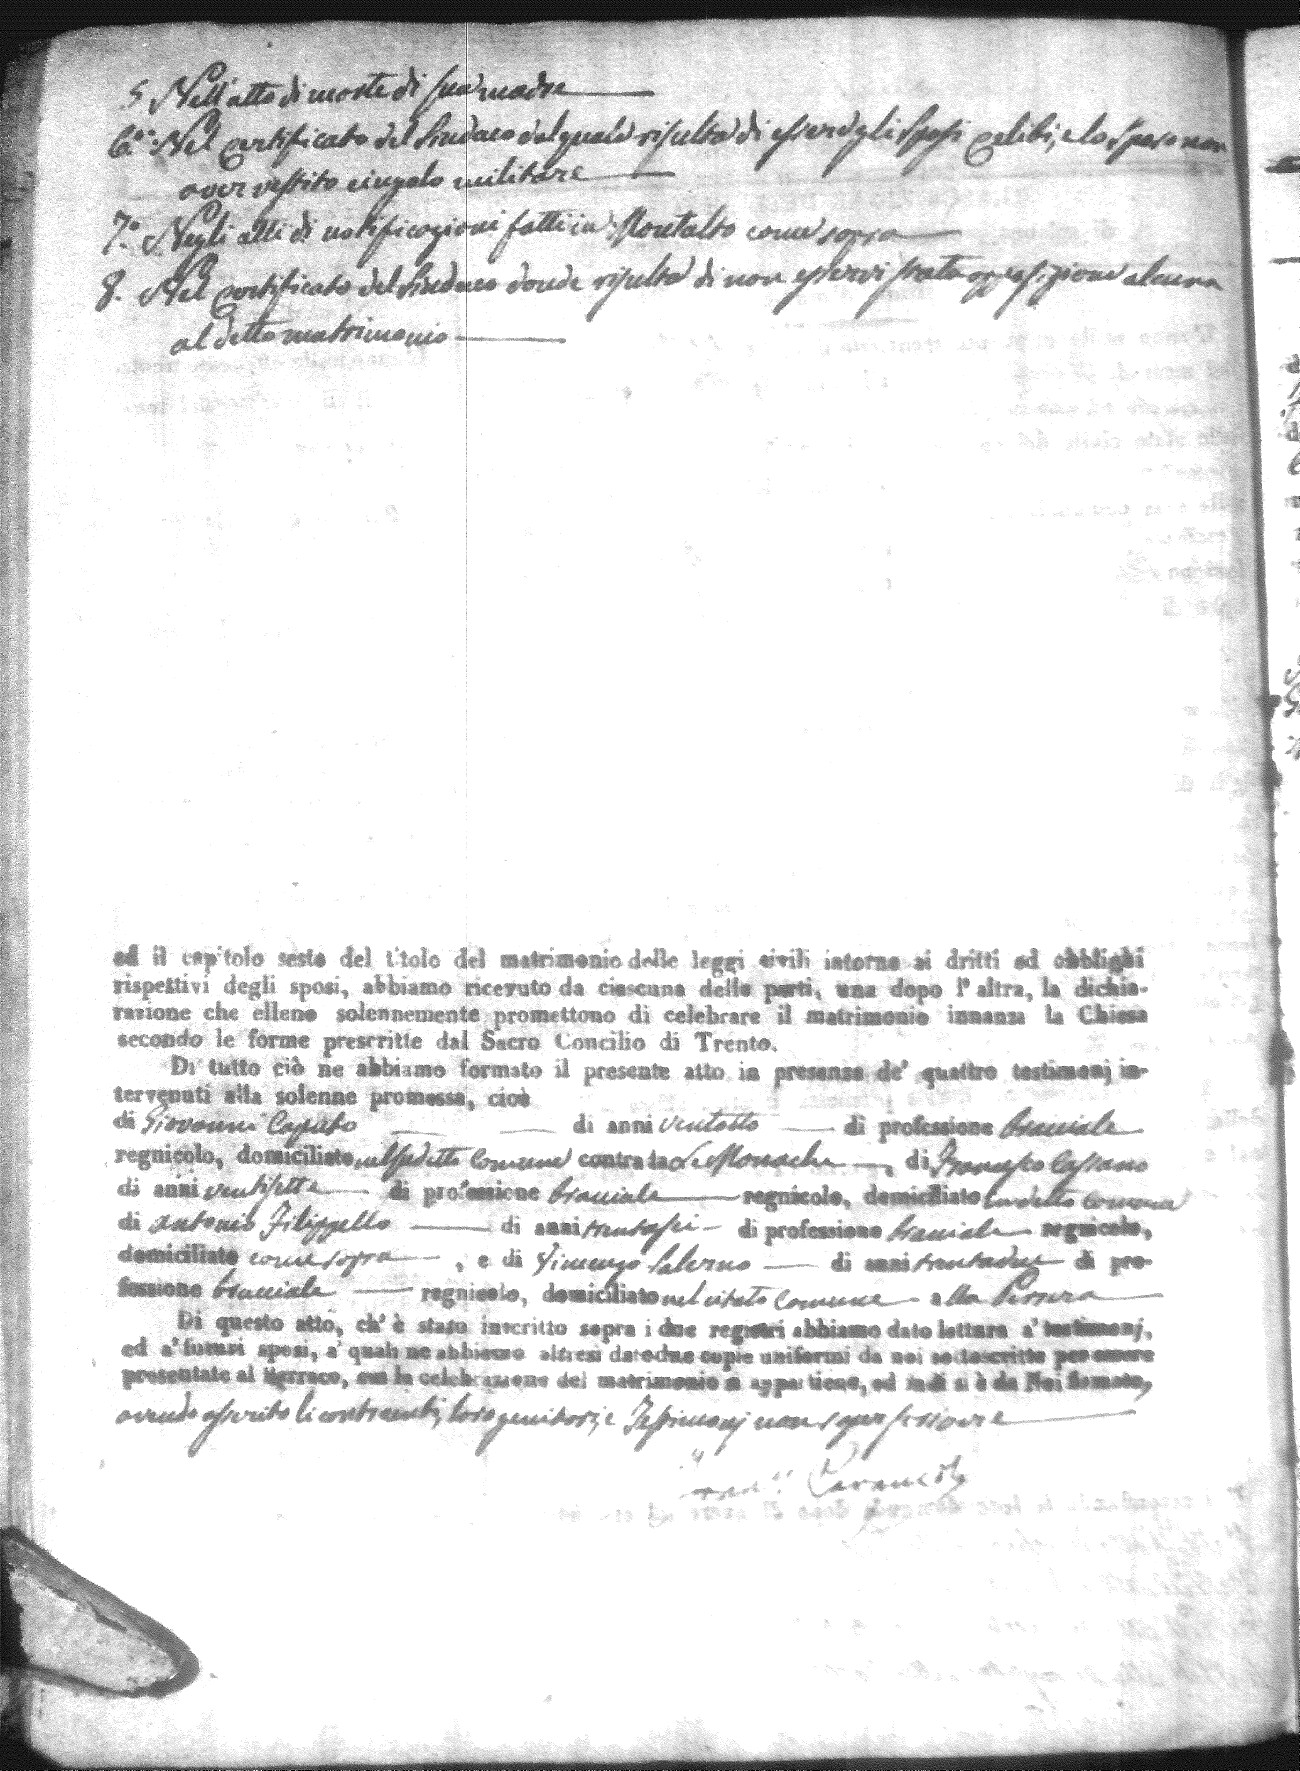 5. Nell'atto di morte di sua madre
6.° Nel certificato del Sindaco dal quale risulta di essere gli Sposi celibi, e lo Sposo non
aver vestito cingolo militare
7.° Negli atti di notificazioni fatti in Montalto come sopra
8. Nel certificato del Sindaco donde risulta di non esservi stata opposizione alcuna
al detto matrimonio
ed il capitolo sesto del titolo del matrimonio delle leggi civili intorno ai dritti ed obblighi
rispettivi degli sposi, abbiamo ricevuto da ciascuna delle parti, una dopo l'altra, la dichia-
razione che elleno solennemente promettono di celebrare il matrimonio innanzi la Chiesa
secondo le forme prescritte dal Sacro Concilio di Trento.
Di tutto ciò ne abbiamo formato il presente atto in presenza de' quattro testimonj in-
tervenuti alla solenne promessa, cioè
di Giovanni Caputo di anni ventotto di professione bracciale
regnicolo, domiciliato nel sudetto Comune contrada Le Monache, di Francesco
di anni ventisette di professione bracciale regnicolo, domiciliato in detto Comune
di Antonio Filippello di anni trentasei di professione bracciale regnicolo,
domiciliato come sopra, e di Vincenzo Salerno di anni trentadue di pro-
fessione bracciale regnicolo, domiciliato nel citato Comune alla
Di questo atto, ch' è stato inscritto sopra i due registri abbiamo dato lettura a' testimonj,
ed a' futuri sposi, a' quali ne abbiamo altresì dato due copie uniformi da noi sottoscritte per essere
presentate al Parroco, cui la celebrazione del matrimonio si appartiene, ed indi si è da Noi firmato,
avendo asserito li contraenti, loro genitori, e Testimonj non saper scrivere